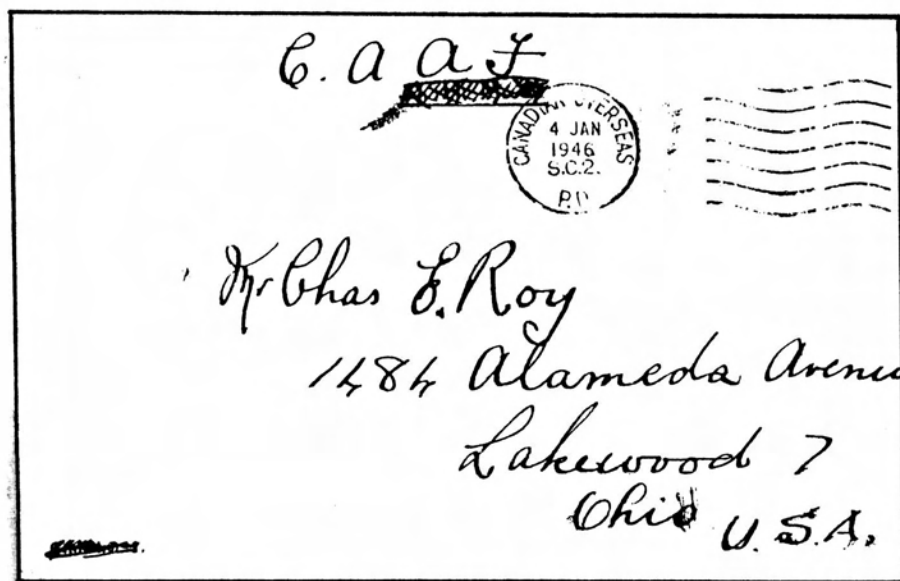 C. A A F
CANADIAN OVERSEAS
4 JAN
1946
S.C.2.
P.O
Mr Chas E. Roy
1484 Alameda Avenue
Lakewood 7
Ohio U.S.A.